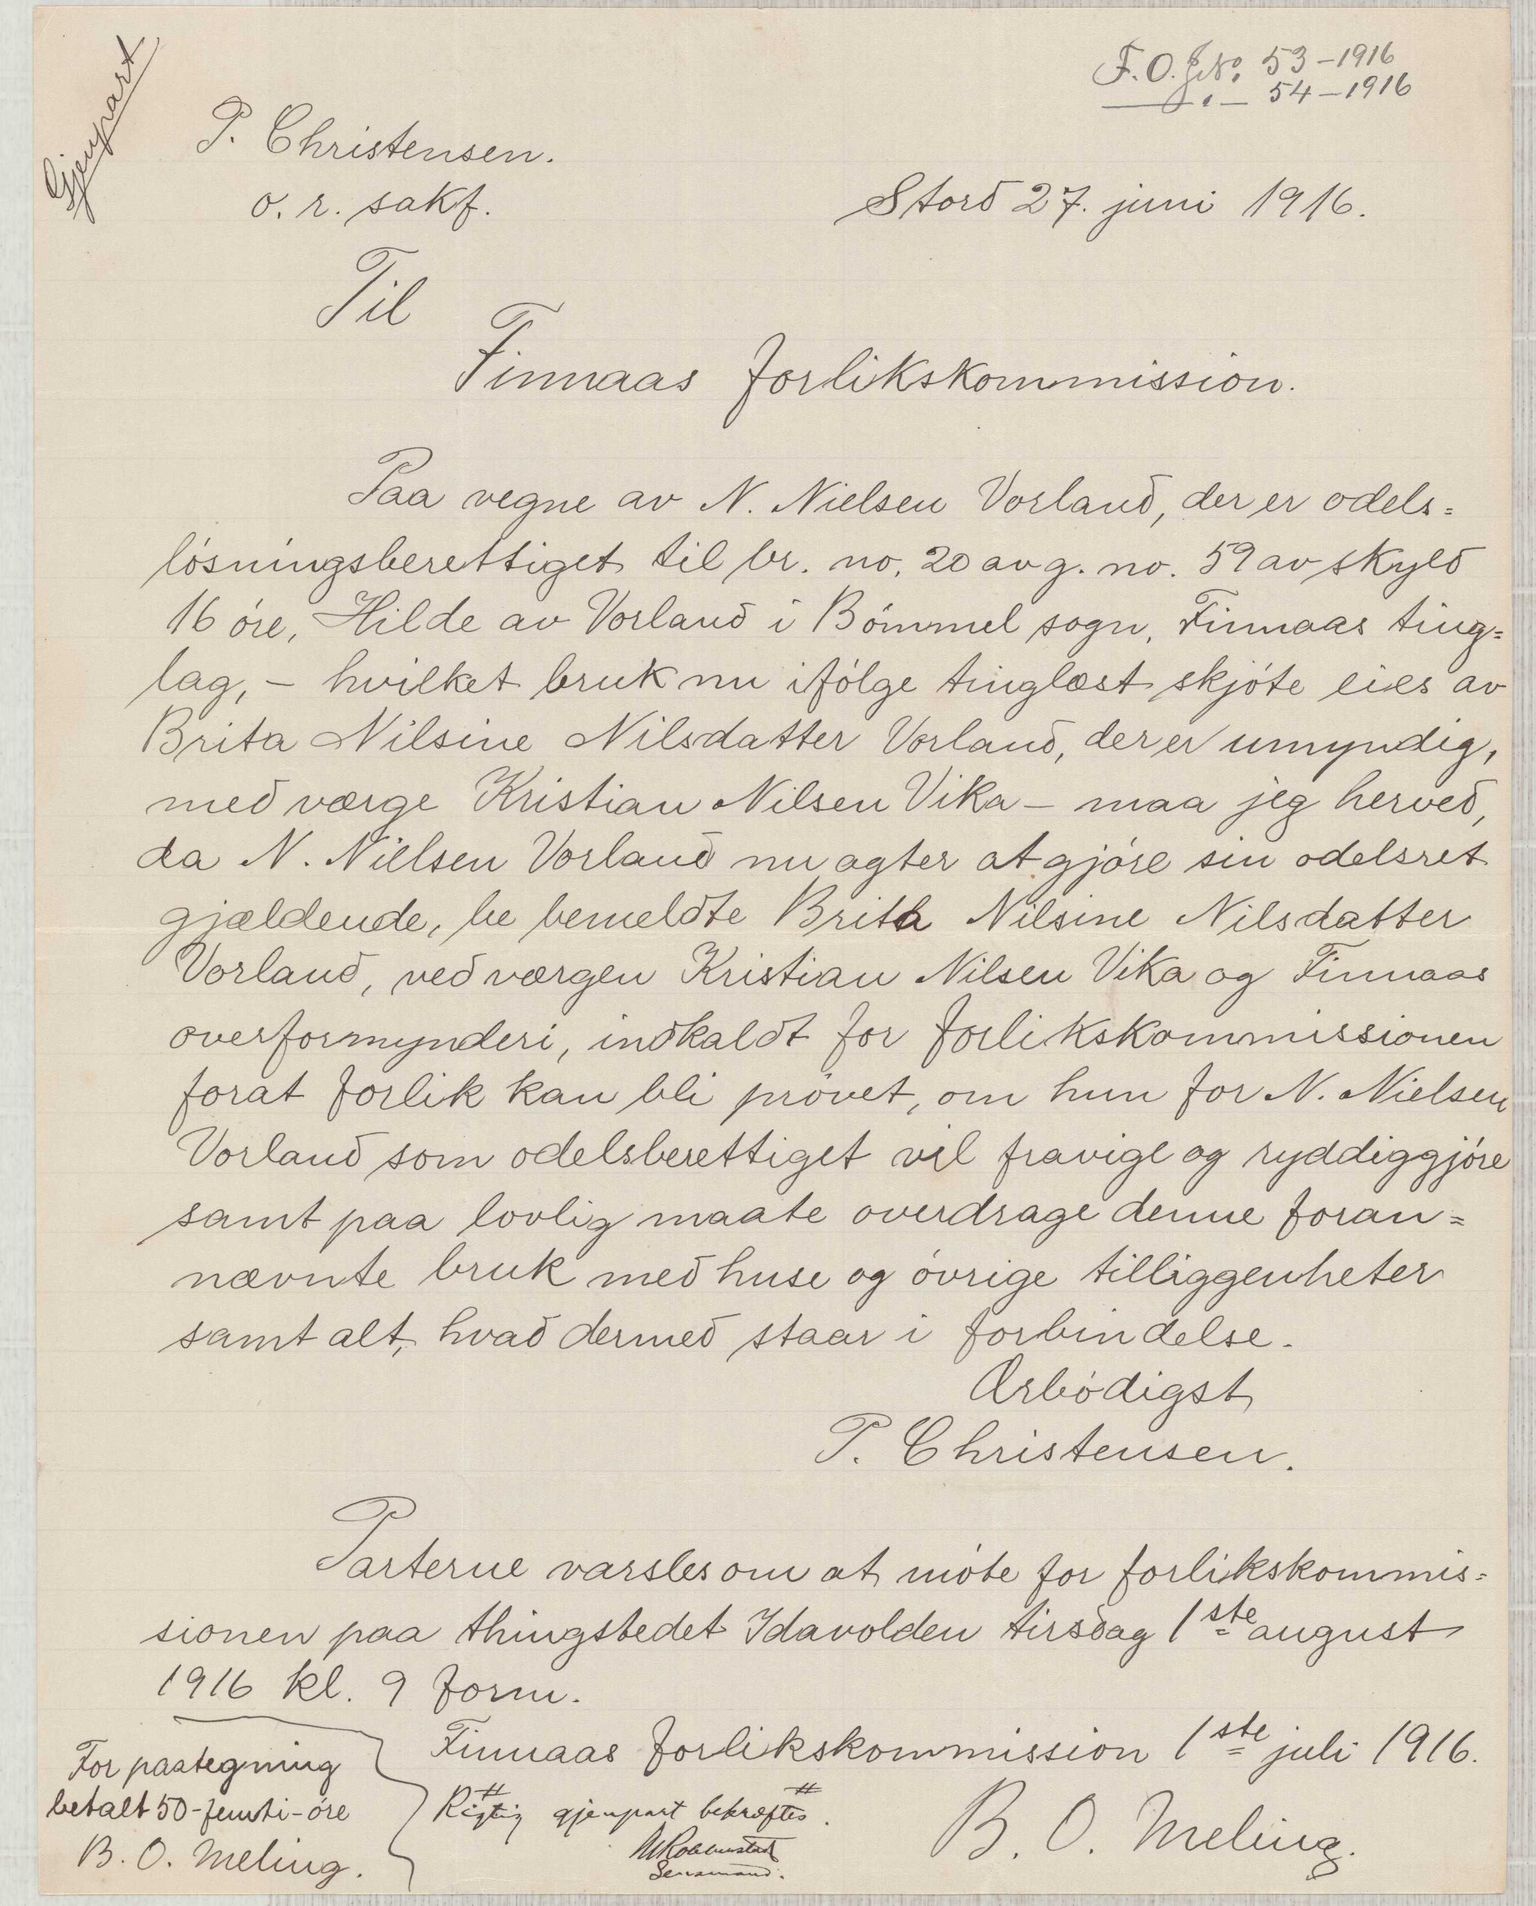 Gjenpart
F. O. J.No. 53-1916
—„— 54-1916
P. Christensen.
o. r. sakf.
Stord 27. juni 1916.
Til
Finnaas forlikskommission.
Paa vegne av N. Nielsen Vorland, der er odels=
lósningsberettiget til br. no. 20 av g. no. 59 av skyld
16 óre, Hilde av Vorland i Bómmel sogn, Finnaas ting=
lag, - hvilket bruk nu ifólge tinglæst skjóte eies av
Brita Nilsine Nilsdatter Vorland, der er umyndig,
med værge Kristian Nilsen Vika - maa jeg herved,
da N. Nielsen Vorland nu agter at gjóre sin odelsret
gjældende, be bemeldte Brita Nilsine Nilsdatter
Vorland, ved værgen Kristian Nilsen Vika og Finnaas
overformynderi, indkaldt for forlikskommissionen
forat forlik kan bli próvet, om hun for N. Nielsen
Vorland som odelsberettiget vil fravige og ryddiggjóre
samt paa lovlig maate overdrage denne foran=
nævnte bruk med huse og óvrige tilliggenheter
samt alt, hvad dermed staar i forbindelse.
Ærbódigst
P. Christensen.
Parterne varsles om at móte for forlikskommis=
sionen paa thingstedet Idavolden tirsdag 1ste august
1916 kl. 9 form.
Finnaas forlikskommission 1ste juli 1916.
B. O. Meling.
For paategning
betalt 50-femti-óre
B. O. Meling.
Rigtig gjenpart bekræftes.
Lensmand.